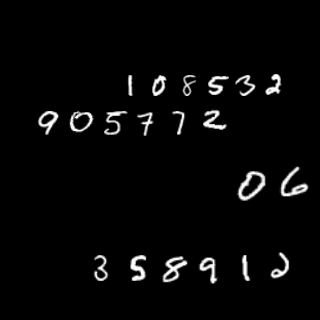 108532
905772
06
358912